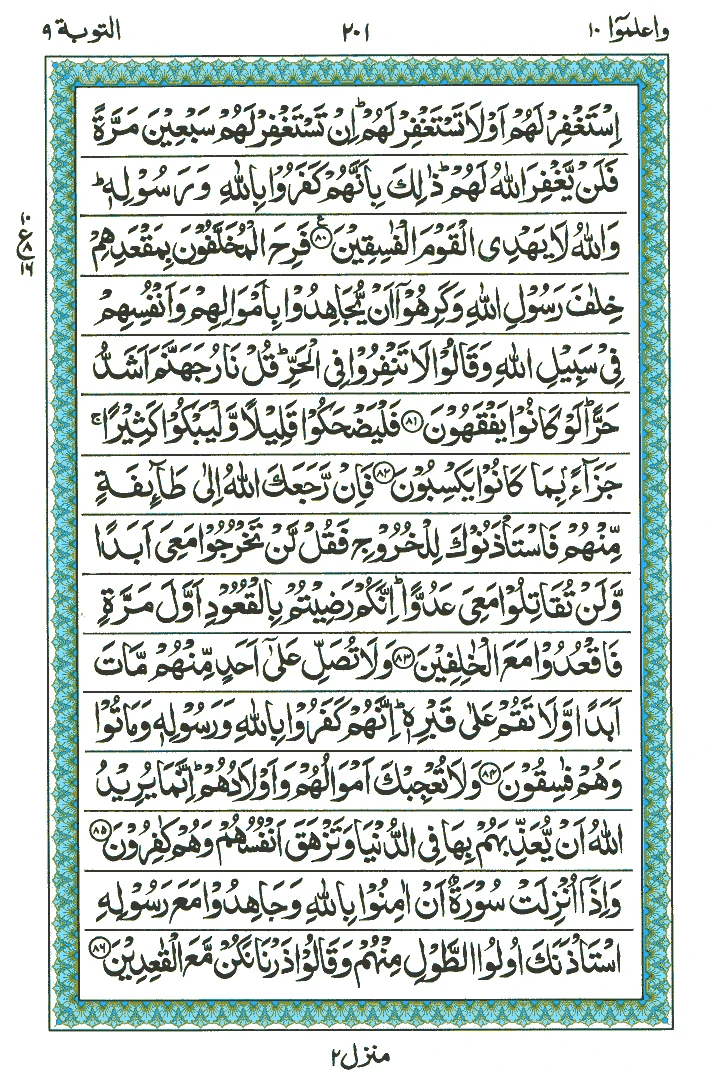 واعلموٓا ١٠ ٢٠١ التوبة ٩
اِسْتَغْفِرْ لَهُمْ اَوْ لَا تَسْتَغْفِرْ لَهُمْ ؕ اِنْ تَسْتَغْفِرْ لَهُمْ سَبْعِيْنَ مَرَّةً
فَلَنْ يَّغْفِرَ اللّٰهُ لَهُمْ ؕ ذٰلِكَ بِاَنَّهُمْ كَفَرُوْا بِاللّٰهِ وَ رَسُوْلِهٖ ؕ
وَاللّٰهُ لَا يَهْدِى الْقَوْمَ الْفٰسِقِيْنَ ﴿٨٠﴾ فَرِحَ الْمُخَلَّفُوْنَ بِمَقْعَدِهِمْ
١٠ ع ٨ ١٦
خِلٰفَ رَسُوْلِ اللّٰهِ وَ كَرِهُوْۤا اَنْ يُّجَاهِدُوْا بِاَمْوَالِهِمْ وَ اَنْفُسِهِمْ
فِيْ سَبِيْلِ اللّٰهِ وَ قَالُوْا لَا تَنْفِرُوْا فِى الْحَرِّ ؕ قُلْ نَارُ جَهَنَّمَ اَشَدُّ
حَرًّا ؕ لَوْ كَانُوْا يَفْقَهُوْنَ ﴿٨١﴾ فَلْيَضْحَكُوْا قَلِيْلًا وَّ لْيَبْكُوْا كَثِيْرًا ۚ
جَزَآءًۢ بِمَا كَانُوْا يَكْسِبُوْنَ ﴿٨٢﴾ فَاِنْ رَّجَعَكَ اللّٰهُ اِلٰى طَآئِفَةٍ
مِّنْهُمْ فَاسْتَاْذَنُوْكَ لِلْخُرُوْجِ فَقُلْ لَّنْ تَخْرُجُوْا مَعِىَ اَبَدًا
وَّلَنْ تُقَاتِلُوْا مَعِىَ عَدُوًّا ؕ اِنَّكُمْ رَضِيْتُمْ بِالْقُعُوْدِ اَوَّلَ مَرَّةٍ
فَاقْعُدُوْا مَعَ الْخٰلِفِيْنَ ﴿٨٣﴾ وَلَا تُصَلِّ عَلٰٓى اَحَدٍ مِّنْهُمْ مَّاتَ
اَبَدًا وَّلَا تَقُمْ عَلٰى قَبْرِهٖ ؕ اِنَّهُمْ كَفَرُوْا بِاللّٰهِ وَرَسُوْلِهٖ وَمَاتُوْا
وَهُمْ فٰسِقُوْنَ ﴿٨٤﴾ وَلَا تُعْجِبْكَ اَمْوَالُهُمْ وَاَوْلَادُهُمْ ؕ اِنَّمَا يُرِيْدُ
اللّٰهُ اَنْ يُّعَذِّبَهُمْ بِهَا فِى الدُّنْيَا وَ تَزْهَقَ اَنْفُسُهُمْ وَهُمْ كٰفِرُوْنَ ﴿٨٥﴾
وَاِذَاۤ اُنْزِلَتْ سُوْرَةٌ اَنْ اٰمِنُوْا بِاللّٰهِ وَجَاهِدُوْا مَعَ رَسُوْلِهِ
اسْتَاْذَنَكَ اُولُوا الطَّوْلِ مِنْهُمْ وَ قَالُوْا ذَرْنَا نَكُنْ مَّعَ الْقٰعِدِيْنَ ﴿٨٦﴾
منزل ٢